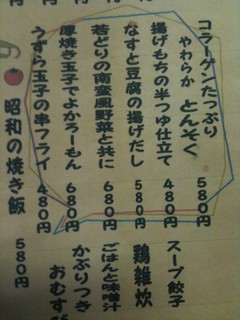 コラーゲンたっぷり
やわらか とんそく 580円
揚げもちの半つゆ仕立て 480円
なすと豆腐の揚げだし 580円
若どりの南蛮風野菜と共に 680円
厚焼き玉子でよかろーもん 680円
うずら玉子の串フライ 480円
昭和の焼き飯 580円
スープ餃子
鶏雑炊
ごはんと味噌汁
かぶりつき
おむすび